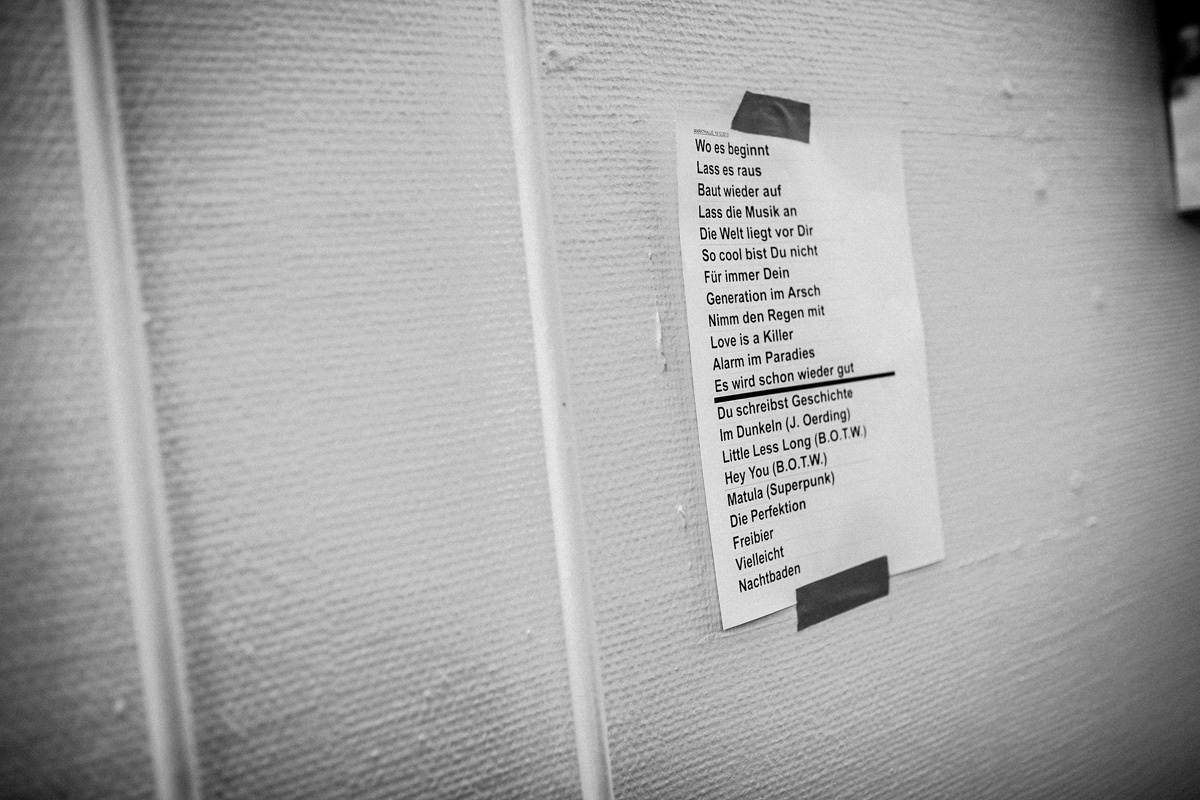 Wo es beginnt
Lass es raus
Baut wieder auf
Lass die Musik an
Die Welt liegt vor Dir
So cool bist Du nicht
Für immer Dein
Generation im Arsch
Nimm den Regen mit
Love is a Killer
Alarm im Paradies
Es wird schon wieder gut
Du schreibst Geschichte
Im Dunkeln (J. Oerding)
Little Less Long (B.O.T.W.)
Hey You (B.O.T.W.)
Matula (Superpunk)
Die Perfektion
Freibier
Vielleicht
Nachtbaden